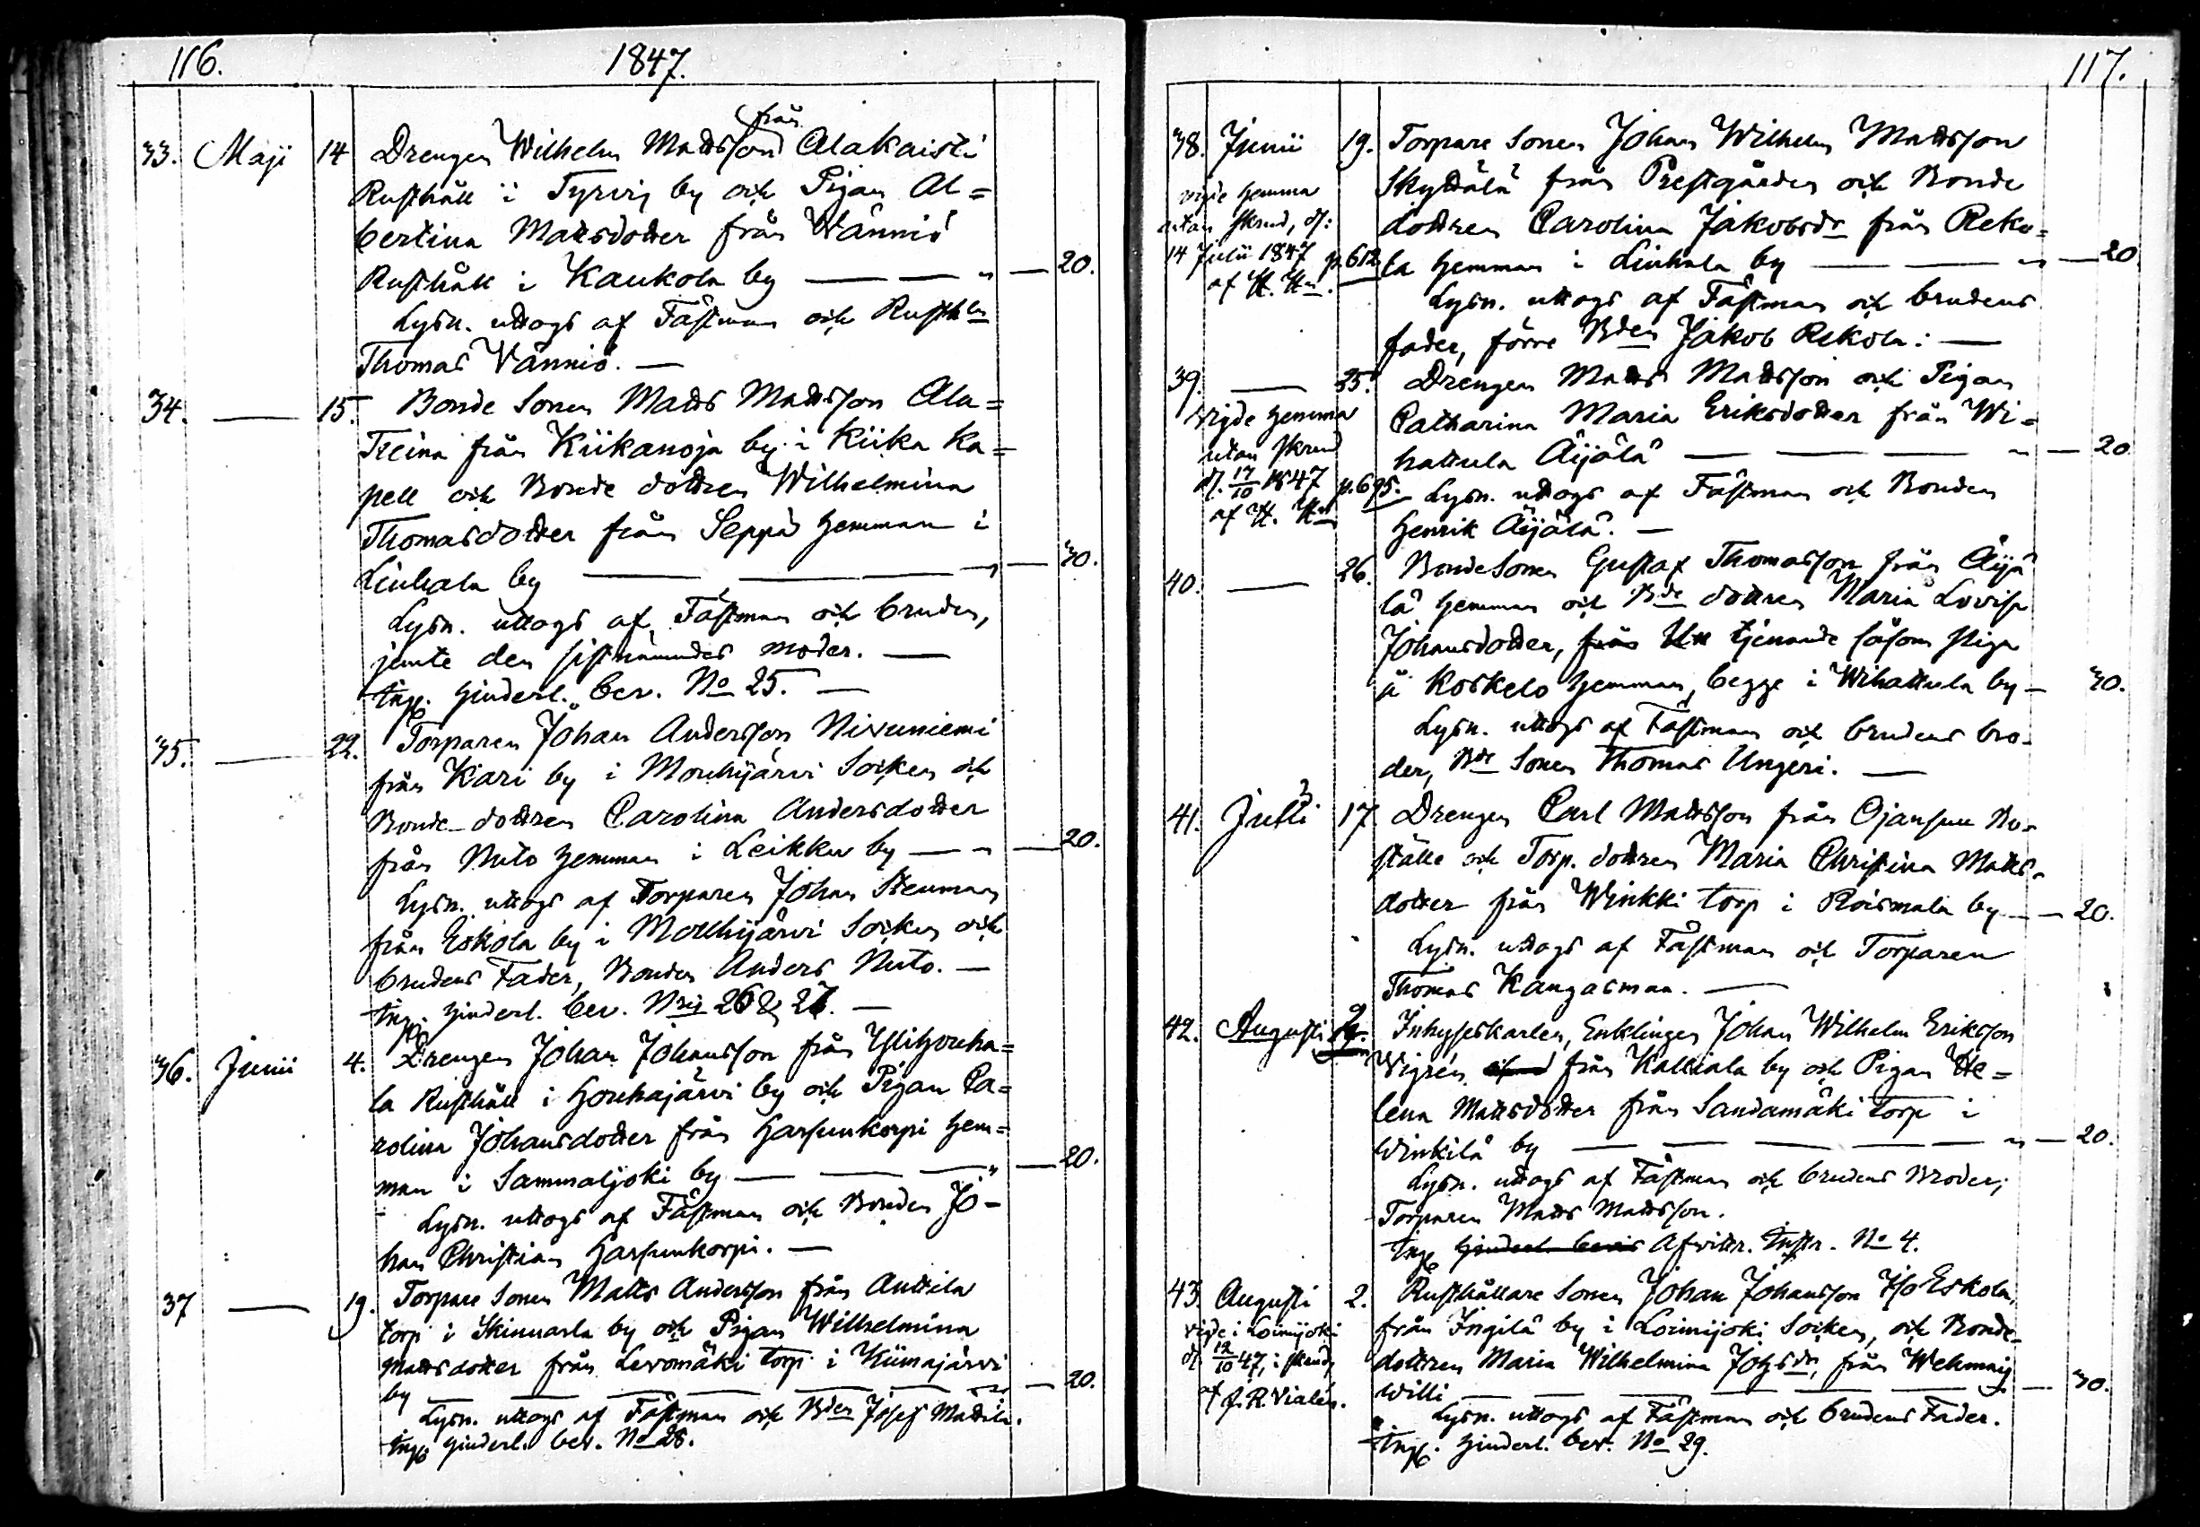 116.
1847.
33. Maji 14 Drengen Wilhelm Mattsson från Alakaisti
Rusthåll i Tyrvis by och Pigan Al=
bertina Mattsdotter från Vänniö
Rusthåll i Kaukola by — — " — 20.
Lysn. uttogs af Fästman och Rusth
Thomas Vänniö. —
34. — 15. Bonde Sonen Matts Mattsson Ala=
Treina från Kiikanoja by i Kiika Ka=
pell och Bonde dottren Wilhelmina
Thomasdotter från Seppä Hemman i
Liuhala by — — — — 40.
Lysn. uttogs af Fästman och bruden,
jemte den sistnämndes moder. —
Ing. Hinderl. bev. No 25. —
35. — 22. Torparen Johan Andersson Nivuniemi
från Kari by i Mouhijärvi Socken och
Bonde-dottren Carolina Andersdotter
från Nuto Hemman i Leikku by — " — 20.
Lysn. uttogs af Torparen Johan Stenman
från Eskola by i Mouhijärvi Socken och
brudens Fader, Bonden Anders Nuto. —
Ing. Hinderl. bev. 26 & 27. —
36. Junii 4. Drengen Johan Johansson från Ylihouha=
la Rusthåll i Houhajärvi by och Pigan Ca=
rolina Johansdotter från Harsunkorpi Hem=
man i Sammaljoki by — — — " — 20.
Lysn. uttogs af Fästman och Bonden Jo-
han Christian Harsunkorpi. —
37 — 19. Torpare Sonen Matts Andersson från Anttila
torp i Skinnarla by och Pigan Wilhelmina
Mattsdotter från Levomäki torp i Kiimajärvi
by — — — — — 20.
Lysn. uttogs af Fästman och Bden Josef Mattila.
Ing. Hinderl. bev. No 28.
117.
38. Junii 19. Torpare Sonen Johan Wilhelm Mattsson
Skyttälä från Prestgården och Bonde
dottren Carolina Jakobsdr från Reko=
la Hemman i Liuhala by — — " — 20
Lysn. uttogs af Fästman och brudens
fader, förre Bden Jakob Rekola: —
vigde hemma
utan skrud, d:
14 Julii 1847 p. 612
af H. Hn.
39. — 25. Drengen Matts Mattsson och Pigan
Catharina Maria Eriksdotter från Wi=
hattula Äijälä — — — " — 20
Lysn. uttogs af Fästman och Bonden
Henrik Äijälä. —
Vigde hemma
utan skrud
d. 17/10 1847 p. 695.
af H. Hn
40. — 26. BondeSonen Gustaf Thomasson från Äijä
lä Hemman och Bde dottren Maria Lovisa
Johansdotter, från tjenande såsom piga
å Koskelo Hemman, begge i Wihattula by — 40.
Lysn. uttogs af Fästman och brudens bro-
der, Bde Sonen Thomas Ungeri. —
41. Julii 17 Drengen Carl Mattsson från Ojansuu Bo-
ställe och Torp. dottren Maria Christina Matts-
dotter från Winkki torp i Roismala by — — 20.
Lysn. uttogs af Fästman och Torparen
Thomas Kangasmaa. —
42. Augusti Inhyseskarlen, Enklingen Johan Wilhelm Eriksson
Vigrén från Kalliala by och Pigan He=
lena Mattsdotter från Sandamäki torp i
Winkilä by — — — — " — 20.
Lysn. uttogs af Fästman och brudens Broder,
Torparen Matts Mattsson.
Ing. Hinderl. bevis Afvittr. Instr. No 4.
43. Augusti 2. Rusthållare Sonen Johan Johansson Iso Eskola,
från Ingilä by i Loimijoki Socken, och Bonde-
dottren Maria Wilhelmina Johsdr, från Wehmais
Willi — — — — — 40.
Lysn. uttogs af Fästman och brudens Fader.
Ing. Hinderl. bev. No 29.
vigde i Loimijoki
d. 12/10 47, i skrud,
af J. R. Vialén.